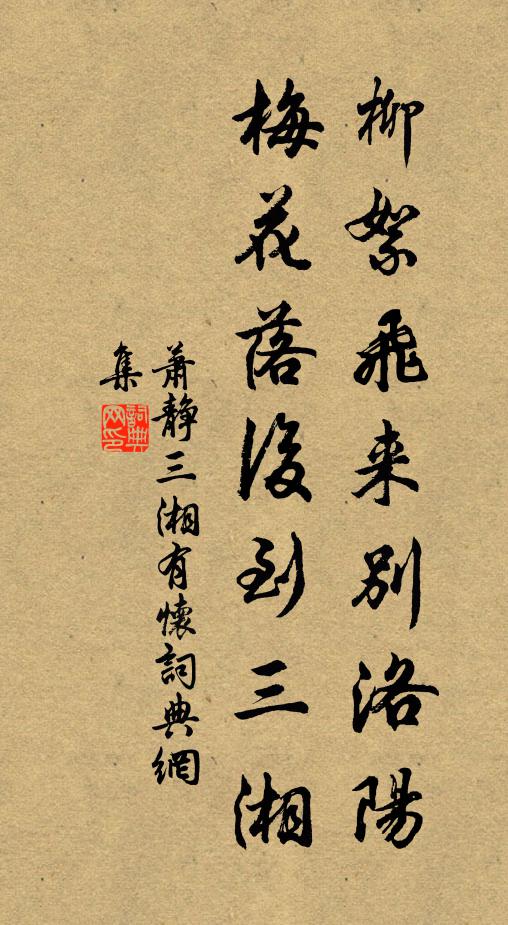 柳絮飛来別洛陽
梅花落後到三湘
蕭静三湘有懷詞典網
集
詞典
网印